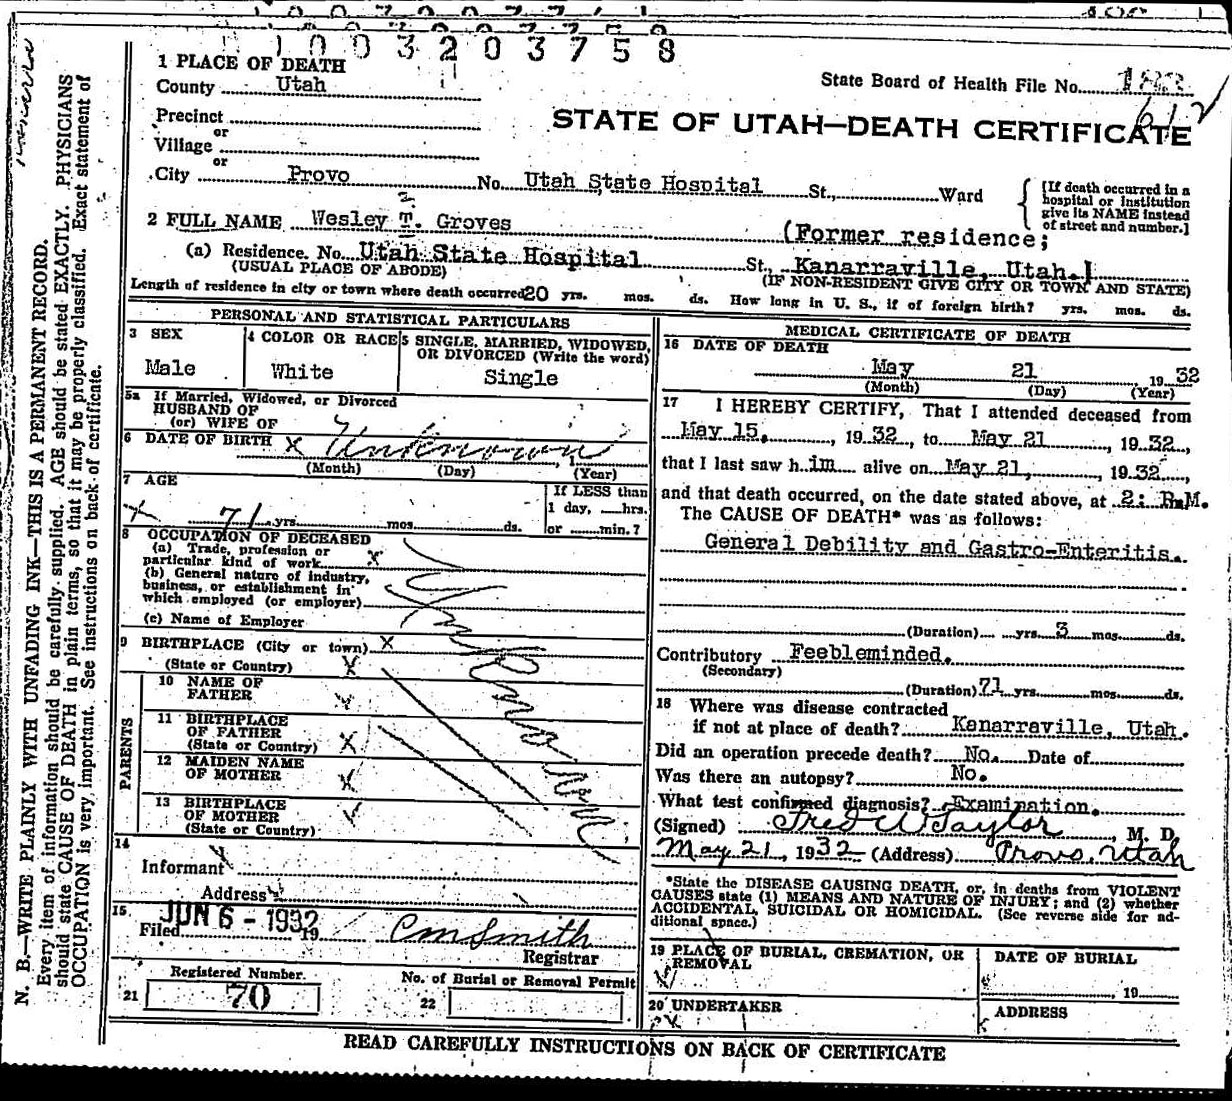 1 0 0 3 2 0 3 7 5 8
1 PLACE OF DEATH
County Utah
State Board of Health File No. 183
612
STATE OF UTAH—DEATH CERTIFICATE
Precinct
or
Village
or
City Provo No. Utah State Hospital St., Ward
[If death occurred in a
hospital or institution
give its NAME instead
of street and number.]
2 FULL NAME Wesley T. Groves
(Former residence;
(a) Residence. No. Utah State Hospital St., Kanarraville, Utah.]
(USUAL PLACE OF ABODE) (IF NON-RESIDENT GIVE CITY OR TOWN AND STATE)
Length of residence in city or town where death occurred 20 yrs. mos. ds. How long in U. S., if of foreign birth? yrs. mos. ds.
PERSONAL AND STATISTICAL PARTICULARS
3 SEX
Male
4 COLOR OR RACE
White
5 SINGLE, MARRIED, WIDOWED,
OR DIVORCED (Write the word)
Single
5a If Married, Widowed, or Divorced
HUSBAND OF
(or) WIFE OF
6 DATE OF BIRTH x Unknown, 1
(Month) (Day) (Year)
7 AGE
x 71 yrs. mos. ds.
If LESS than
1 day, hrs.
or min.?
8 OCCUPATION OF DECEASED
(a) Trade, profession or
particular kind of work x
(b) General nature of industry,
business, or establishment in
which employed (or employer)
(c) Name of Employer
Unknown
9 BIRTHPLACE (City or town) x
(State or Country) x
PARENTS
10 NAME OF
FATHER
11 BIRTHPLACE
OF FATHER
(State or Country) x
12 MAIDEN NAME
OF MOTHER x
13 BIRTHPLACE
OF MOTHER
(State or Country)
14
Informant
Address
15 JUN 6 - 1932
Filed 19 CM Smith
Registrar
21 Registered Number.
70
22 No. of Burial or Removal Permit
MEDICAL CERTIFICATE OF DEATH
16 DATE OF DEATH
May 21 1932
(Month) (Day) (Year)
17 I HEREBY CERTIFY, That I attended deceased from
May 15, 1932, to May 21, 1932,
that I last saw him alive on May 21, 1932,
and that death occurred, on the date stated above, at 2: P.M.
The CAUSE OF DEATH* was as follows:
General Debility and Gastro-Enteritis.
(Duration) yrs. 3 mos. ds.
Contributory Feebleminded.
(Secondary)
(Duration) 71 yrs. mos. ds.
18 Where was disease contracted
if not at place of death? Kanarraville, Utah.
Did an operation precede death? No. Date of
Was there an autopsy? No.
What test confirmed diagnosis? Examination.
(Signed) Fred W Taylor, M. D.
May 21, 1932 (Address) Provo, Utah
*State the DISEASE CAUSING DEATH, or, in deaths from VIOLENT
CAUSES state (1) MEANS AND NATURE OF INJURY; and (2) whether
ACCIDENTAL, SUICIDAL OR HOMICIDAL. (See reverse side for ad-
ditional space.)
19 PLACE OF BURIAL, CREMATION, OR
REMOVAL
DATE OF BURIAL
, 19
20 UNDERTAKER
ADDRESS
READ CAREFULLY INSTRUCTIONS ON BACK OF CERTIFICATE
N. B.—WRITE PLAINLY WITH UNFADING INK—THIS IS A PERMANENT RECORD.
Every item of information should be carefully supplied. AGE should be stated EXACTLY. PHYSICIANS
should state CAUSE OF DEATH in plain terms, so that it may be properly classified. Exact statement of
OCCUPATION is very important. See instructions on back of certificate.